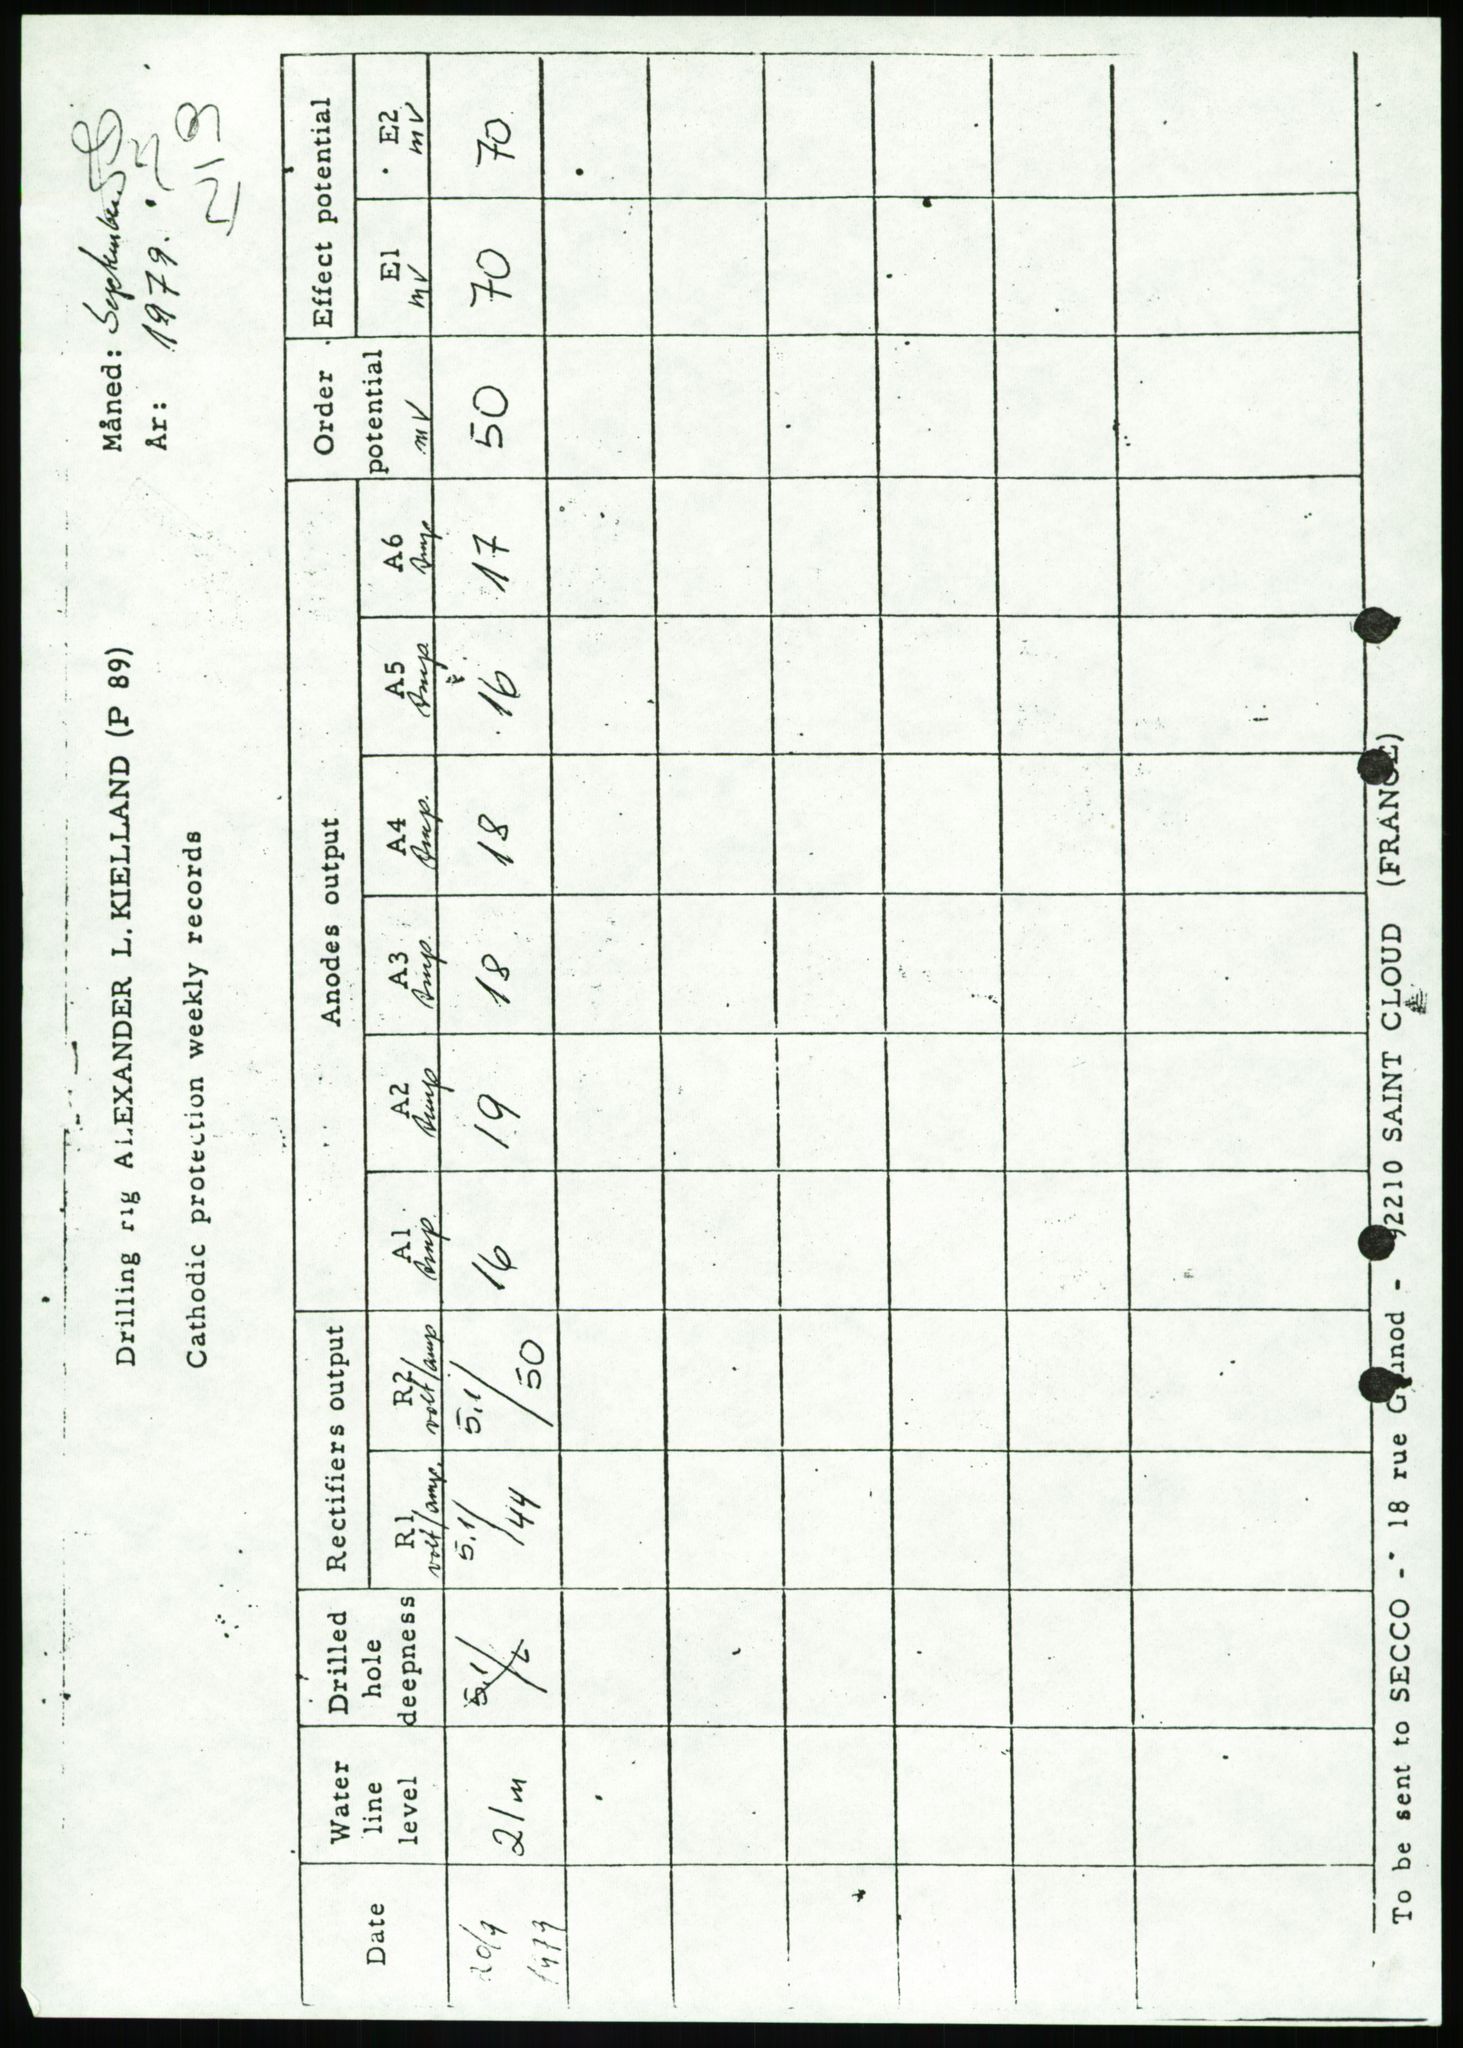 Måned: September
År: 1979.
213
Drilling rig ALEXANDER L. KIELLAND (P 89)
Cathodic protection weekly records
Date Water line level Drilled hole deepness Rectifiers output Anodes output Order potential Effect potential
R1 R2 A1 A2 A3 A4 A5 A6 E1 E2
volt/amp. volt/amp Amp. Amp Amp. Amp. Amp Amp mV mV mV
20/9 1979 21m 5,1/ 5,1/44 5,1/50 16 19 18 18 16 17 50 70 70
To be sent to SECCO - 18 rue Gounod - 92210 SAINT CLOUD (FRANCE)